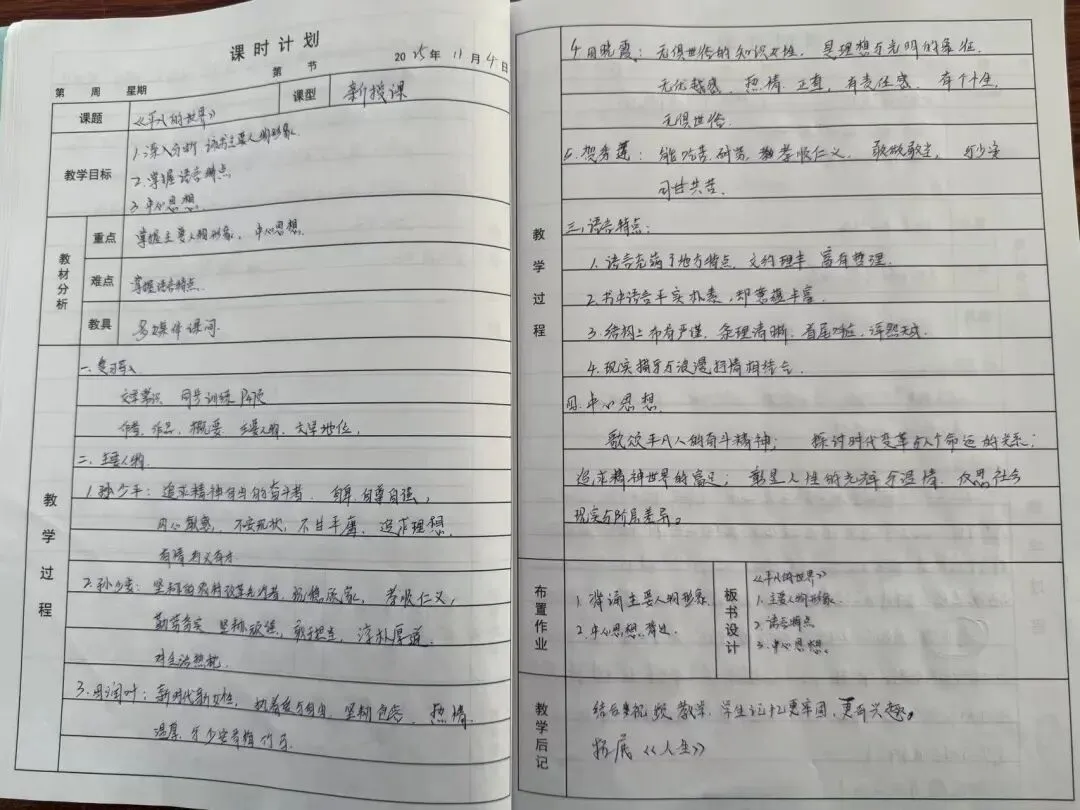 课时计划
第 节 2025年11月4日
第 周 星期 课型 新授课
课题 《平凡的世界》
教学目标 1.深入分析该书主要人物形象
2.掌握语言特点
3.中心思想
教材分析
重点 掌握主要人物形象,中心思想.
难点 掌握语言特点.
教具 多媒体课间.
教学过程
一、复习导入
文学常识 同步训练
作者、作品、概要 主要人物、文学地位,
二、主要人物
1.孙少平:追求精神自由的奋斗者. 自尊自强,
内心敏感,不安现状,不甘平庸,追求理想,
有情有义
2.孙少安: 孝顺仁义,
勤劳务实 坚韧 敢于担当,淳朴厚道.
对生活热忱.
3.田润叶:新时代新女性, 坚韧 热情
温厚.
4.田晓霞:无惧世俗的知识女性,是理想与光明的象征.
无优越感,热情 正直,有责任感,有个性,
无惧世俗.
5.贺秀莲:能吃苦耐劳, 孝顺仁义、敢做敢当, 与少安
同甘共苦.
教学过程
三、语言特点:
1.语言充满了地方特点、文约理丰 富有哲理.
2.书中语言平实朴素,却意蕴丰富.
3.结构上布布严谨,条理清晰.首尾呼应,浑然天成.
4.现实描写与浪漫抒情相结合.
四.中心思想.
歌颂平凡人的奋斗精神; 探讨时代变革与个命运的关系;
追求精神世界的富足; 彰显人性的光辉与温情 反思社会
现实与阶层差异。
布置作业
1.背诵主要人物形象.
2.中心思想背过.
板书设计
《平凡的世界》
1.主要人物形象.
2.语言特点
3.中心思想。
教学后记
结合 教学,学生记忆更牢固,更有兴趣。
拓展《人生》